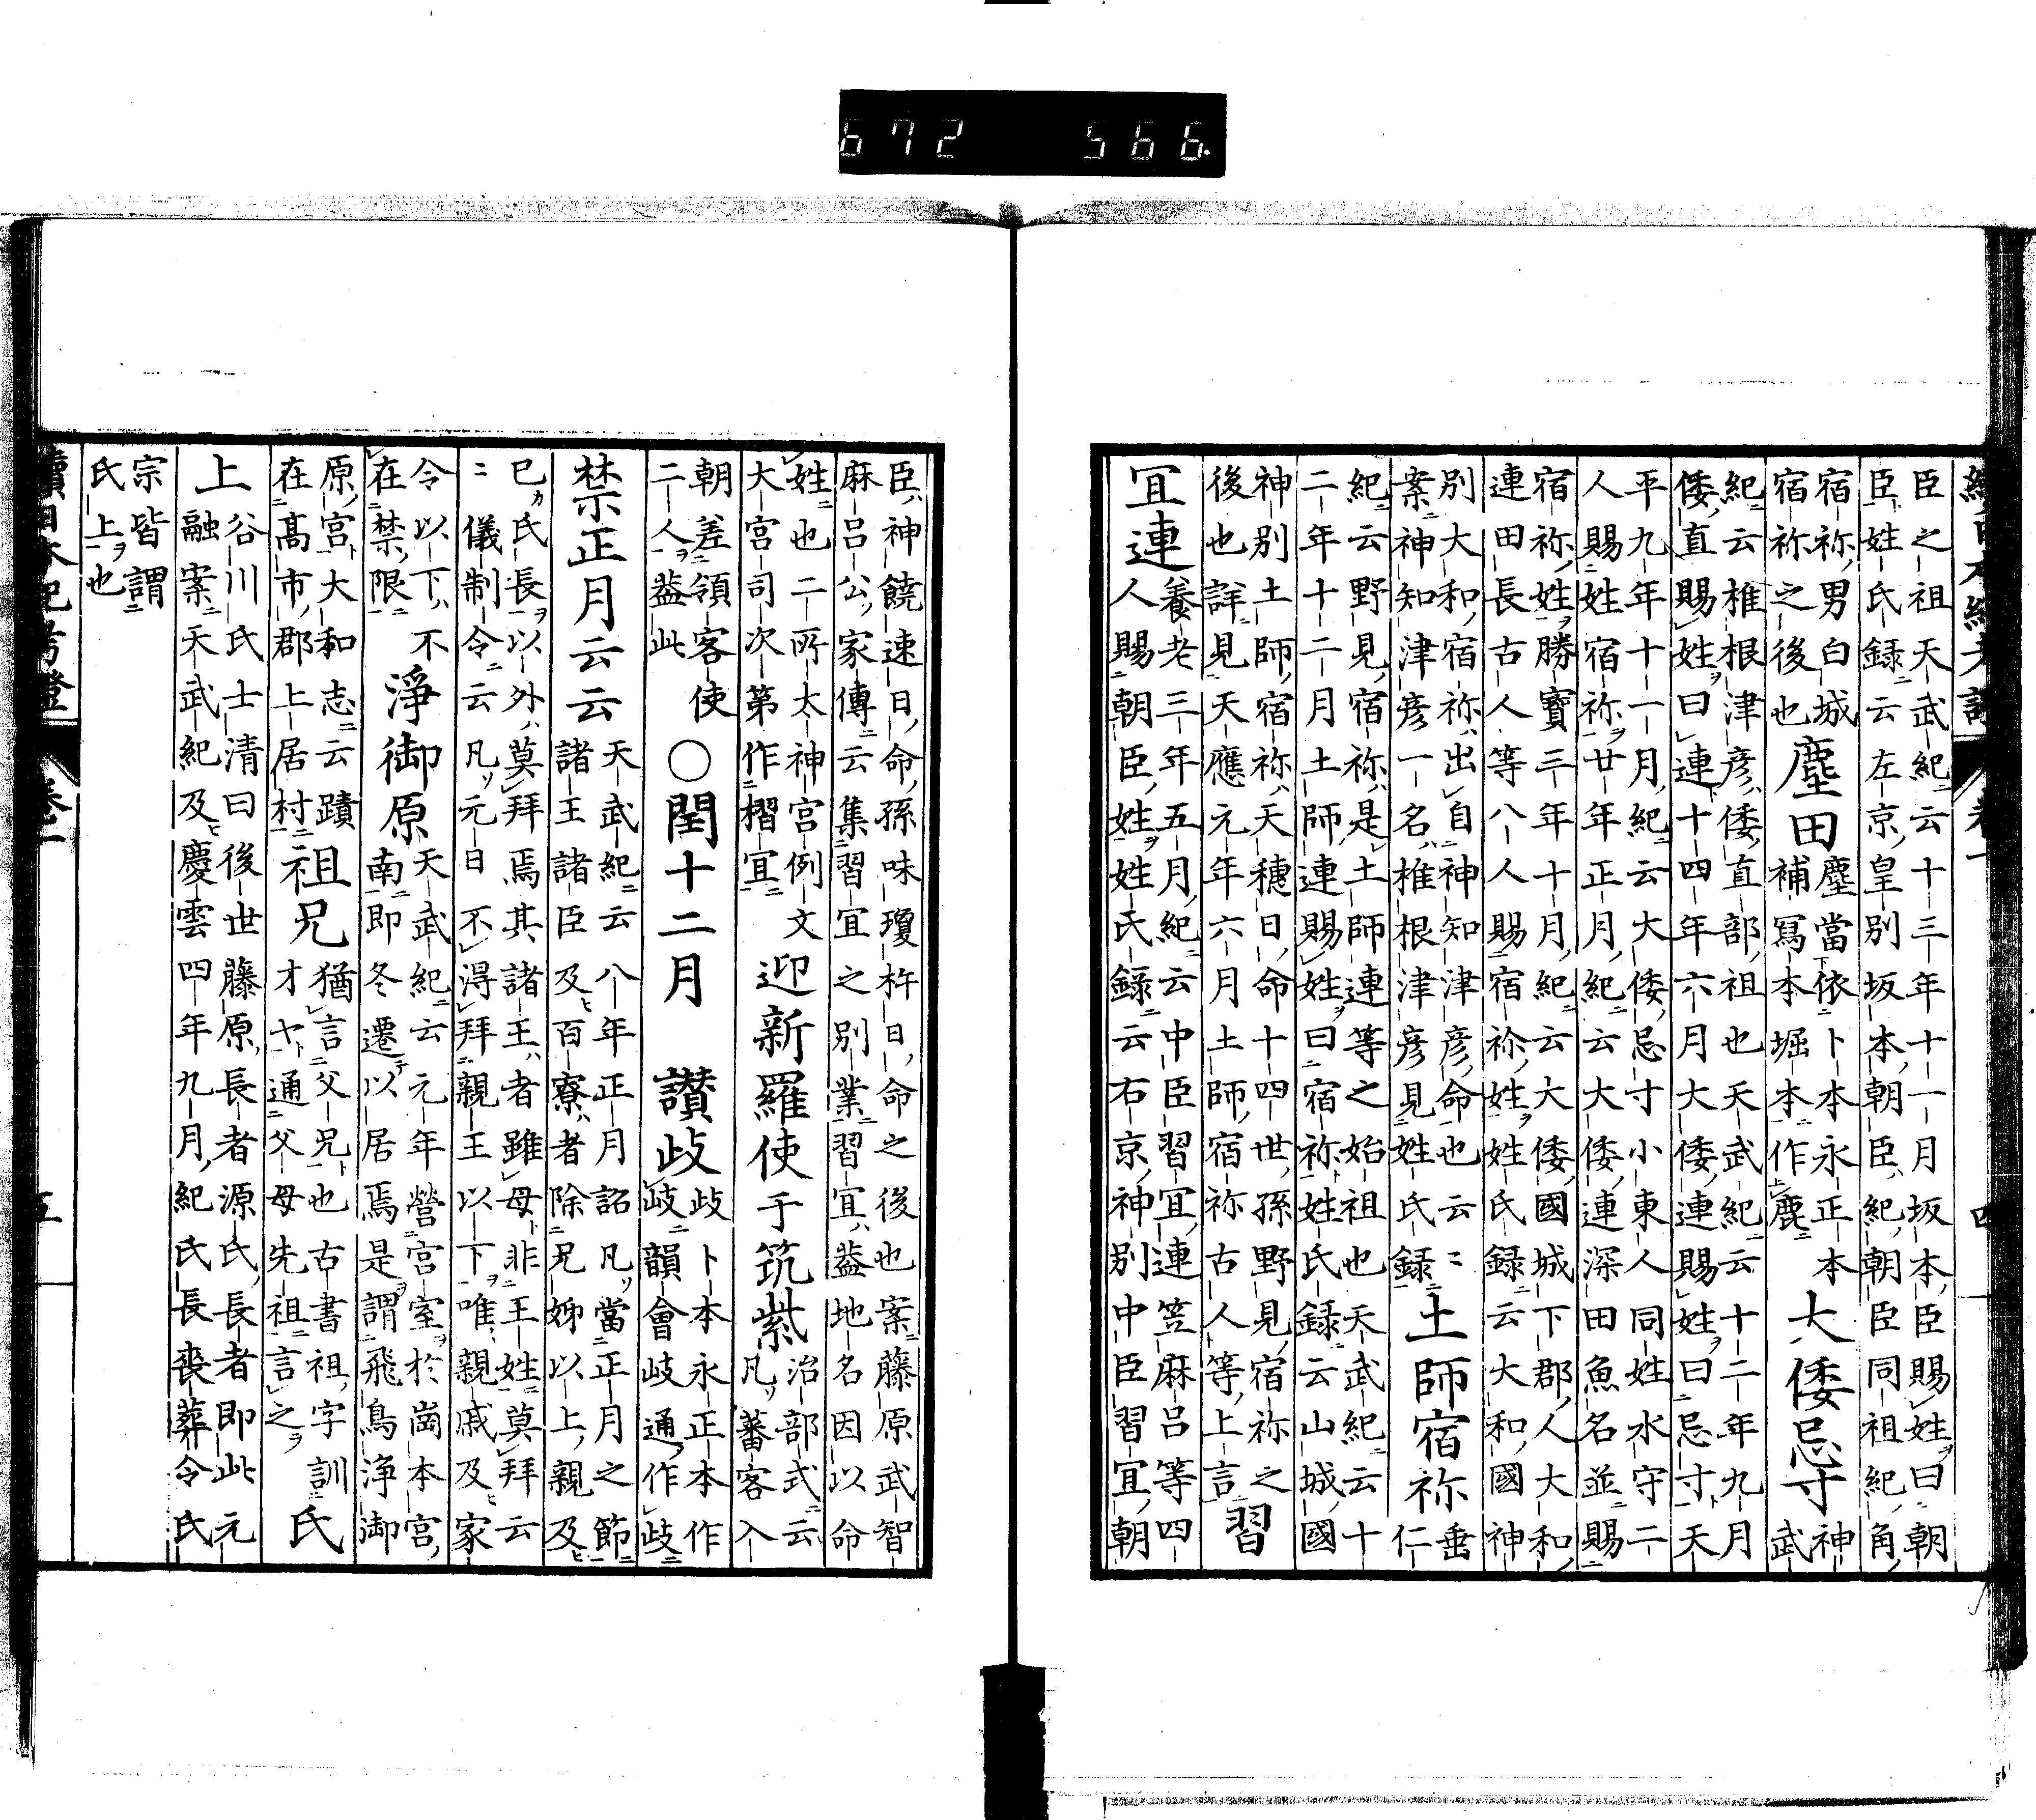 672 566.
續日本紀考證 卷一 四
臣之祖天武紀云十三年十一月坂本臣賜姓曰朝
臣姓氏録云左京皇別坂本朝臣紀朝臣同祖紀角
宿祢男白城
宿祢之後也
塵田
塵當依卜本永正本
補寫本堀本作麈
大倭忌寸
神
武
紀云椎根津彦倭直部祖也天武紀云十二年九月
倭直賜姓曰連十四年六月大倭連賜姓曰忌寸天
平九年十一月紀云大倭忌寸小東人同姓水守二
人賜姓宿祢廿年正月紀云大倭連深田魚名並賜
宿祢姓勝寳三年十月紀云大倭國城下郡人大和
連田長古人等八人賜宿祢姓姓氏録云大和國神
別大和宿祢出自神知津彦命也云〻
案神知津彦一名椎根津彦見姓氏録
土師宿祢
垂
仁
紀云野見宿祢是土師連等之始祖也天武紀云十
二年十二月土師連賜姓曰宿祢姓氏録云山城國
神別土師宿祢天穗日命十四世孫野見宿祢之
後也詳見天應元年六月土師宿祢古人等上言
習
宜連
養老三年五月紀云中臣習宜連笠麻呂等四
人賜朝臣姓姓氏録云右京神別中臣習宜朝
臣神饒速日命孫味瓊杵日命之後也案藤原武智
麻呂公家傳云集習宜之別業習宜蓋地名因以命
姓也二所太神宮例文
大宮司次第作榴宜
迎新羅使于筑紫
治部式云
凡蕃客入
朝差領客使
二人蓋此
〇閏十二月 讃歧
歧卜本永正本作
岐韻會岐通作歧
禁正月云云
天武紀云八年正月詔凡當正月之節
諸王諸臣及百寮者除兄姊以上親及
已氏長以外莫拜焉其諸王者雖母非王姓莫拜云
〻儀制令云凡元日不得拜親王以下唯親戚及家
令以下不
在禁限
淨御原
天武紀云元年營宮室於崗本宮
南即冬遷以居焉是謂飛鳥淨御
原宮大和志云蹟
在髙市郡上居村
祖兄
猶言父兄也古書祖字訓
オヤ通父母先祖言之
氏
上
谷川氏士清曰後世藤原長者源氏長者即此元
融案天武紀及慶雲四年九月紀氏長喪葬令氏
宗皆謂
氏上也
續日本紀考證 卷一 五